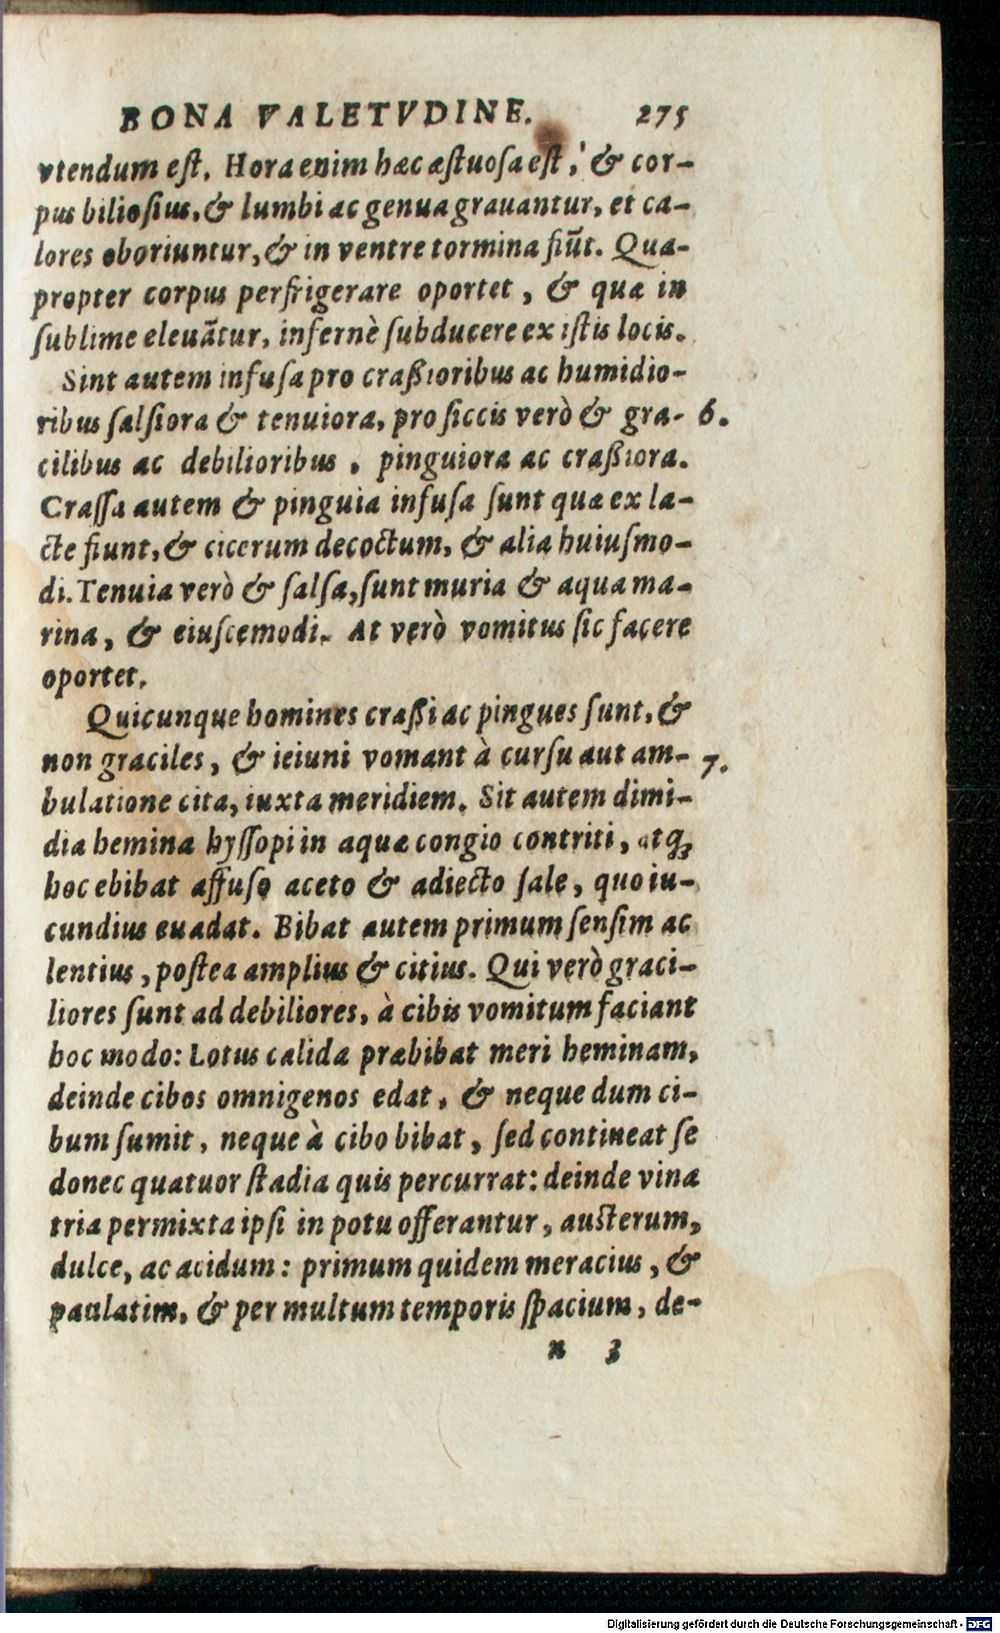 BONA VALETVDINE. 275
vtendum est. Hora enim hæc æstuosa est, & cor-
pus biliosius, & lumbi ac genua grauantur, et ca-
lores oboriuntur, & in ventre tormina fiūt. Qua-
propter corpus perfrigerare oportet, & quæ in
sublime eleuātur, infernè subducere ex istis locis.
Sint autem infusa pro craßioribus ac humidio-
ribus salsiora & tenuiora, pro siccis verò & gra- 6.
cilibus ac debilioribus, pinguiora ac craßiora.
Crassa autem & pinguia infusa sunt quæ ex la-
cte fiunt, & cicerum decoctum, & alia huiusmo-
di. Tenuia verò & salsa, sunt muria & aqua ma-
rina, & eiuscemodi. At verò vomitus sic facere
oportet.
Quicunque homines craßi ac pingues sunt, &
non graciles, & ieiuni vomant à cursu aut am- 7.
bulatione cita, iuxta meridiem. Sit autem dimi-
dia hemina hyssopi in aquæ congio contriti, atq;
hoc ebibat affuso aceto & adiecto sale, quo iu-
cundius euadat. Bibat autem primum sensim ac
lentius, postea amplius & citius. Qui verò graci-
liores sunt ad debiliores, à cibis vomitum faciant
hoc modo: Lotus calida præbibat meri heminam,
deinde cibos omnigenos edat, & neque dum ci-
bum sumit, neque à cibo bibat, sed contineat se
donec quatuor stadia quis percurrat: deinde vina
tria permixta ipsi in potu offerantur, austerum,
dulce, ac acidum: primum quidem meracius, &
paulatim, & per multum temporis spacium, de-
n 3
Digitalisierung gefördert durch die Deutsche Forschungsgemeinschaft - DFG